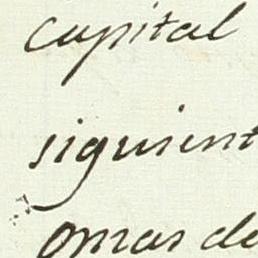 capital
siguient
omas de